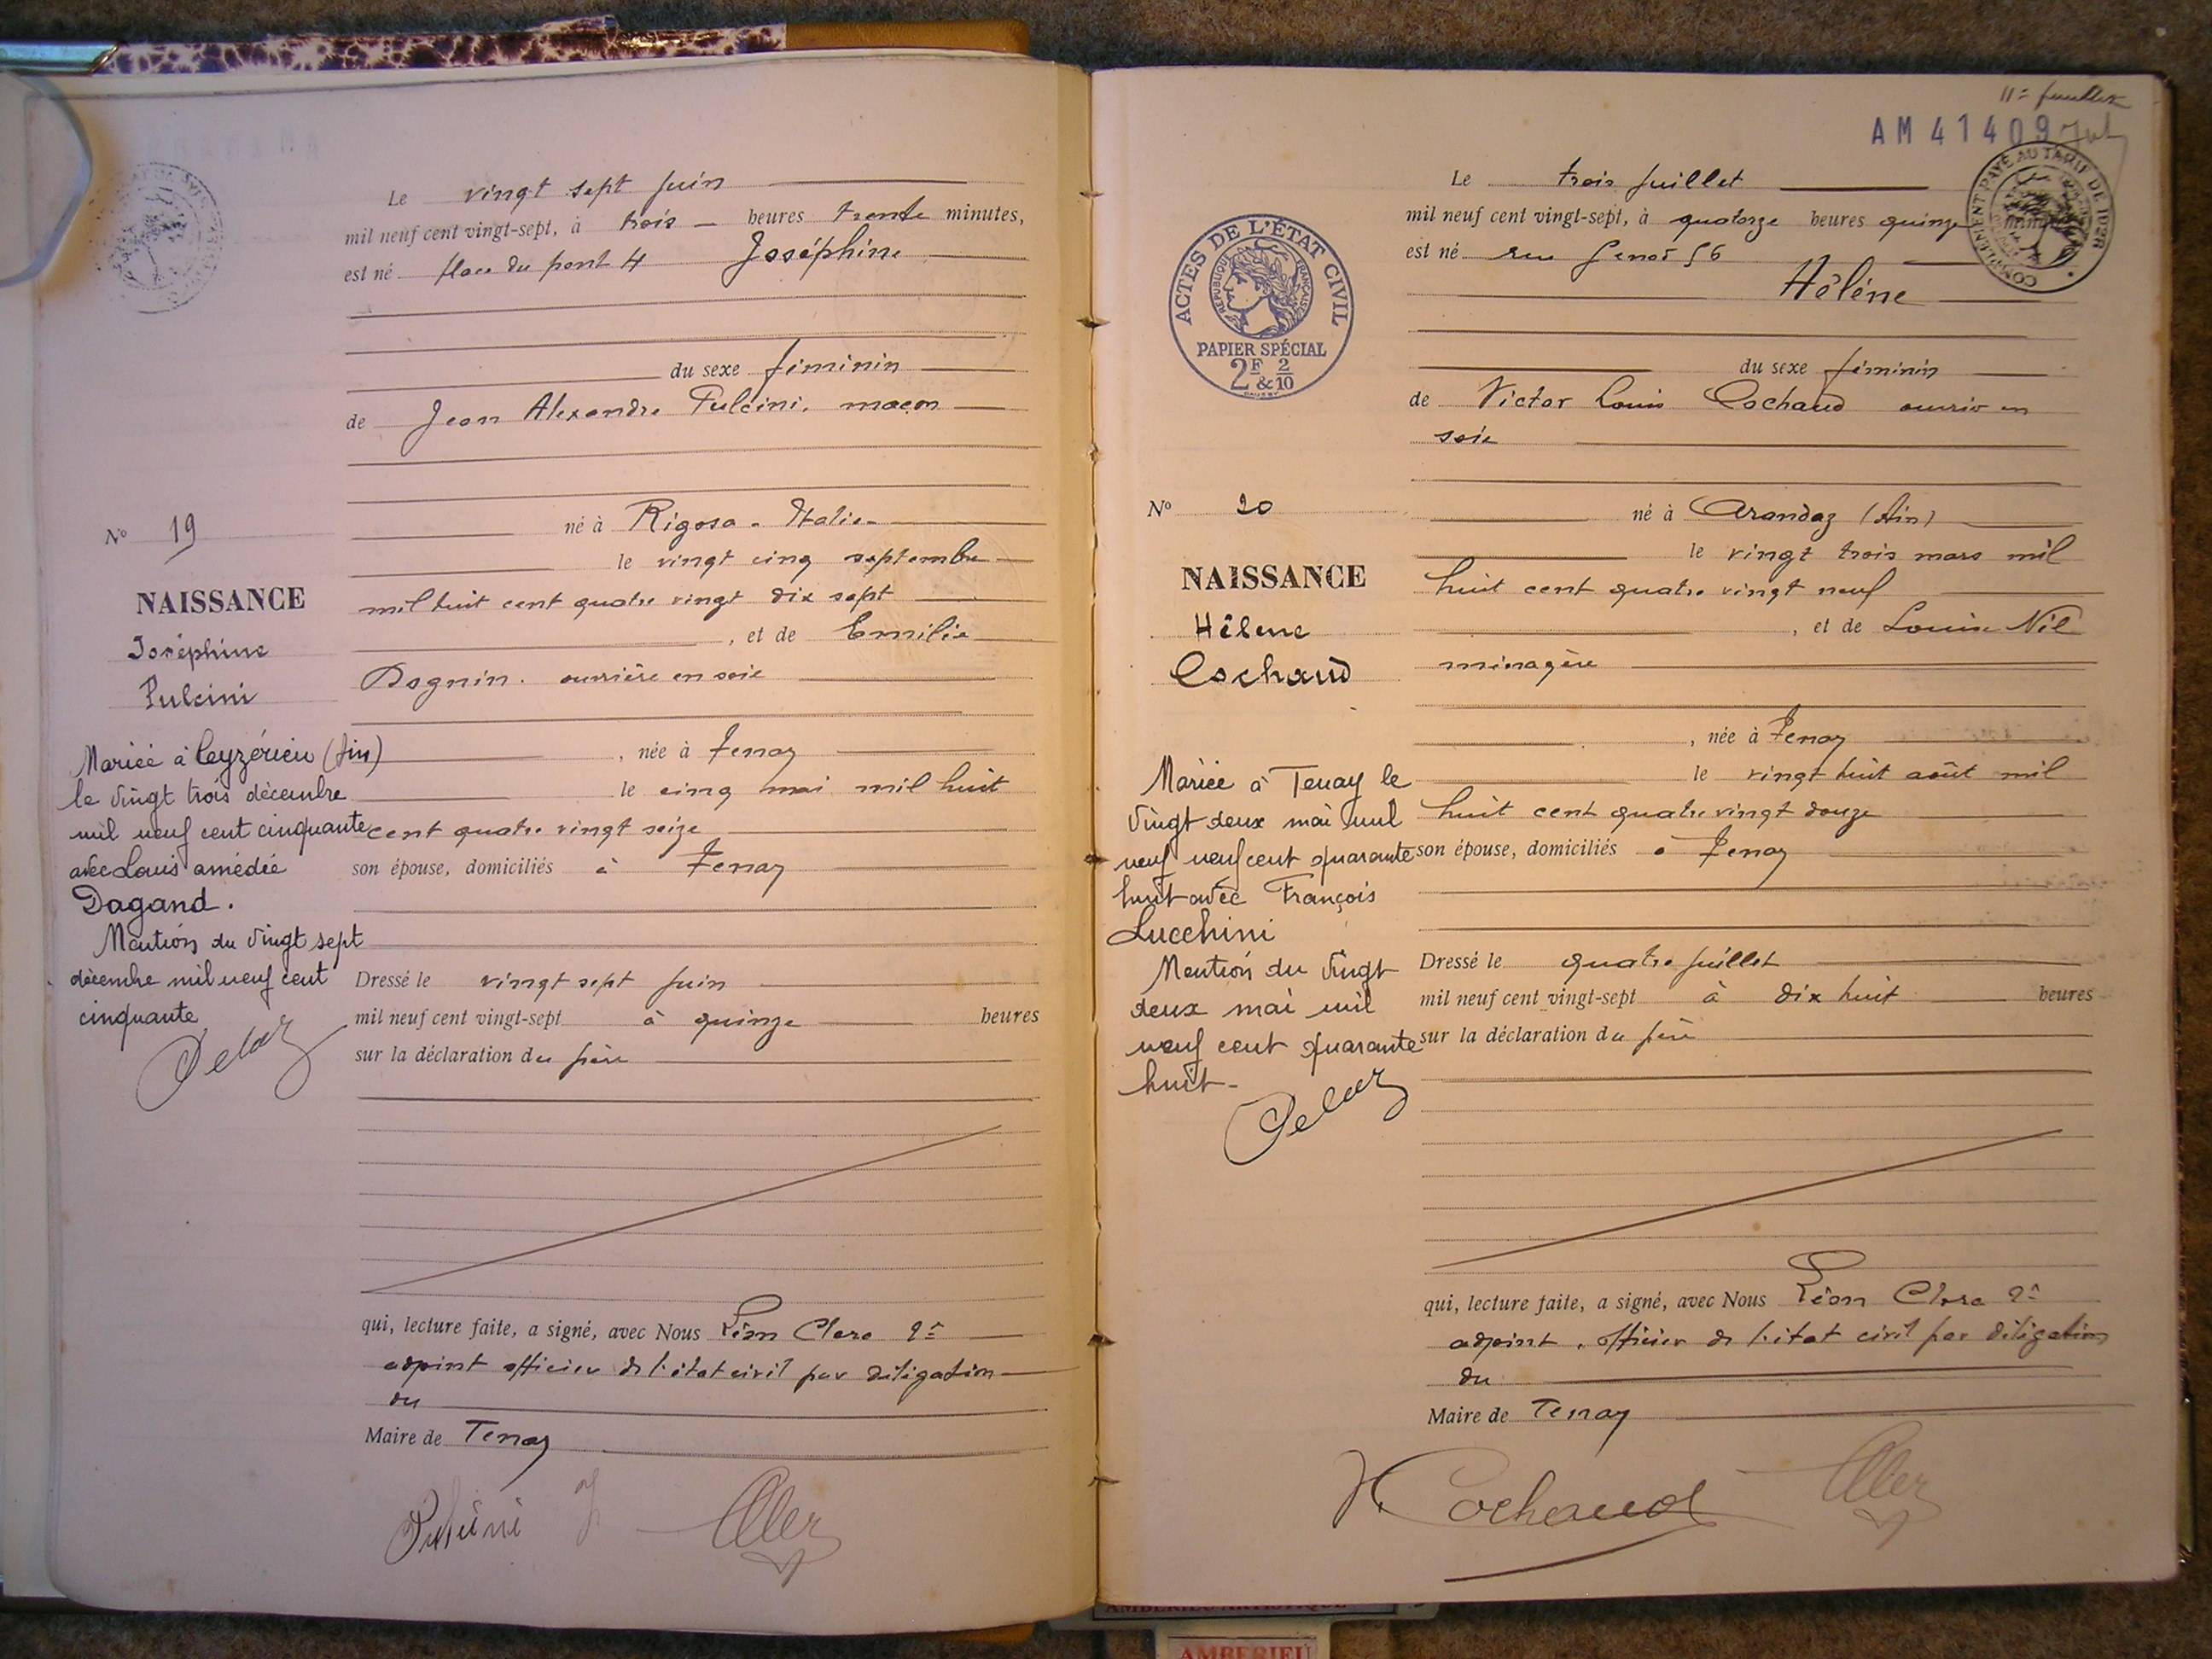 Le vingt sept juin
mil neuf cent vingt-sept, à trois heures trente minutes,
est né place du pont 4 Joséphine
du sexe féminin
de Jean Alexandre Pulcini, maçon
né à Rigosa - Italie -
le vingt cinq septembre
mil huit cent quatre vingt dix sept
, et de Emilie
Dognin. ouvrière en soie
, née à Tenay
le cinq mai mil huit
cent quatre vingt seize
son épouse, domiciliés à Tenay
Dressé le vingt sept juin
mil neuf cent vingt-sept à quinze heures
sur la déclaration du père
qui, lecture faite, a signé, avec Nous Léon Clerc 2e
adjoint officier de l'état civil par délégation
du
Maire de Tenay
Pulcini J
No 19
NAISSANCE
Joséphine
Pulcini
Mariée à Ceyzérieu (Ain)
le vingt trois décembre
mil neuf cent cinquante
avec Louis amédée
Dagand.
Mention du vingt sept
décembre mil neuf cent
cinquante
11e feuillet
AM 41409
ACTES DE L'ÉTAT CIVIL
RÉPUBLIQUE FRANÇAISE
PAPIER SPÉCIAL
2F & 2/10
COMPLÉMENT PAYÉ AU TARIF DE 1926
Le trois juillet
mil neuf cent vingt-sept, à quatorze heures quinze minutes
est né rue Genod 56
Hélène
du sexe féminin
de Victor Louis Cochaud ouvrier en
soie
né à Arandaz (Ain)
le vingt trois mars mil
huit cent quatre vingt neuf
, et de Louise Nil
ménagère
, née à Tenay
le vingt huit août mil
huit cent quatre vingt douze
son épouse, domiciliés à Tenay
Dressé le quatre juillet
mil neuf cent vingt-sept à dix huit heures
sur la déclaration du père
qui, lecture faite, a signé, avec Nous Léon Clerc 2e
adjoint, officier de l'état civil par délégation
du
Maire de Tenay
V Cochaud
No 20
NAISSANCE
Hélène
Cochaud
Mariée à Tenay le
vingt deux mai mil
neuf neuf cent quarante
huit avec François
Lucchini
Mention du vingt
deux mai mil
neuf cent quarante
huit -
AMBERIEU ARTISTIQUE
AMBERIEU